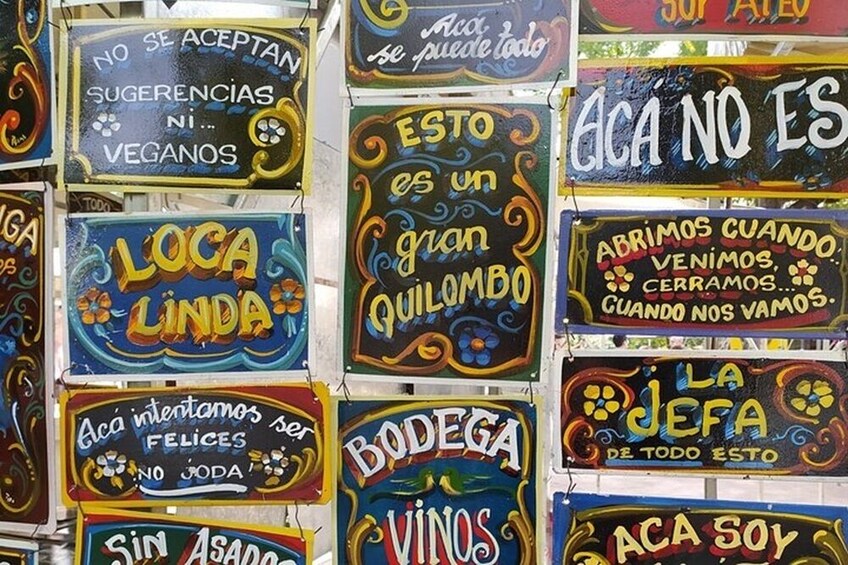 NO SE ACEPTAN
SUGERENCIAS
NI...
VEGANOS
Acá
se puede todo
SOY ATEO
ACÁ NO ES
ESTO
es un
gran
QUILOMBO
LOCA
LINDA
ABRIMOS CUANDO..
VENIMOS,
CERRAMOS...
CUANDO NOS VAMOS.
Acá intentamos ser
FELICES
NO JODA!
BODEGA
VINOS
¡LA
JEFA
DE TODO ESTO
SIN ASADO
ACA SOY
TODO